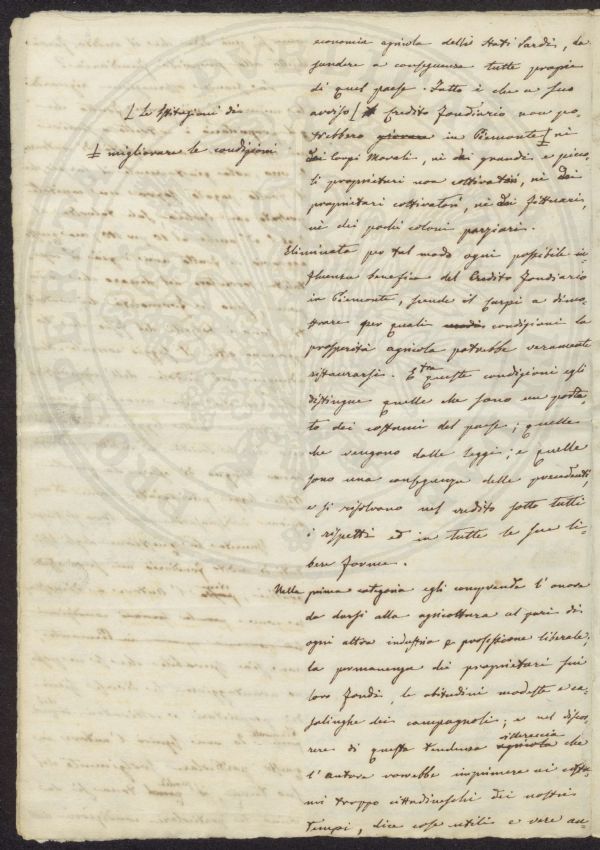 economia agricola delli Stati Sardi, da
scendere a conseguenze tutte proprie
di quel paese. Fatto è che a suo
avviso [ Credito Fondiario non po-
trebbero giovare in Piemonte [ nè
dei luoghi Morali, nè dei grandi e picco-
li proprietari non coltivatori, nè dei
proprietari coltivatori, nè dei fittuari,
nè dei pochi coloni parziari.
[ Le Istituzioni di
[ migliorare le condizioni
Eliminata per tal modo ogni possibile in-
fluenza benefica del Credito Fondiario
in Piemonte, scende il Carpi a dimo-
strare per quali condizioni la
prosperità agricola potrebbe veramente
ristaurarsi. E tra queste condizioni egli
distingue quelle che sono un porta-
to dei costumi del paese; quelle
che vengono dalle leggi; e quelle
sono una conseguenza delle precedenti,
e si risolvono nel credito sotto tutti
i rispetti ed in tutte le sue li-
bere forme.
Nella prima categoria egli comprende l'onore
da darsi alla agricoltura al pari di
ogni altra industria e professione liberale;
la permanenza dei proprietari sui
loro fondi, le abitudini modeste e ca-
salinghe dei campagnoli; e nel discor-
rere di questa tendenza agricola che
l'autore vorrebbe imprimere ai costu-
mi troppo cittadineschi dei nostri
tempi, dice cose utili e vere an-